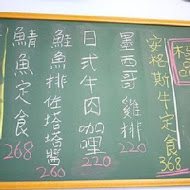 安格斯牛定食
368
墨西哥雞排
220
日式牛肉咖哩
220
鮭魚排佐塔塔醬
260
鯖魚定食
268